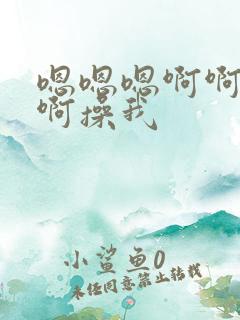 嗯嗯嗯啊啊
啊操我
小鲨鱼0
未经同意禁止转载